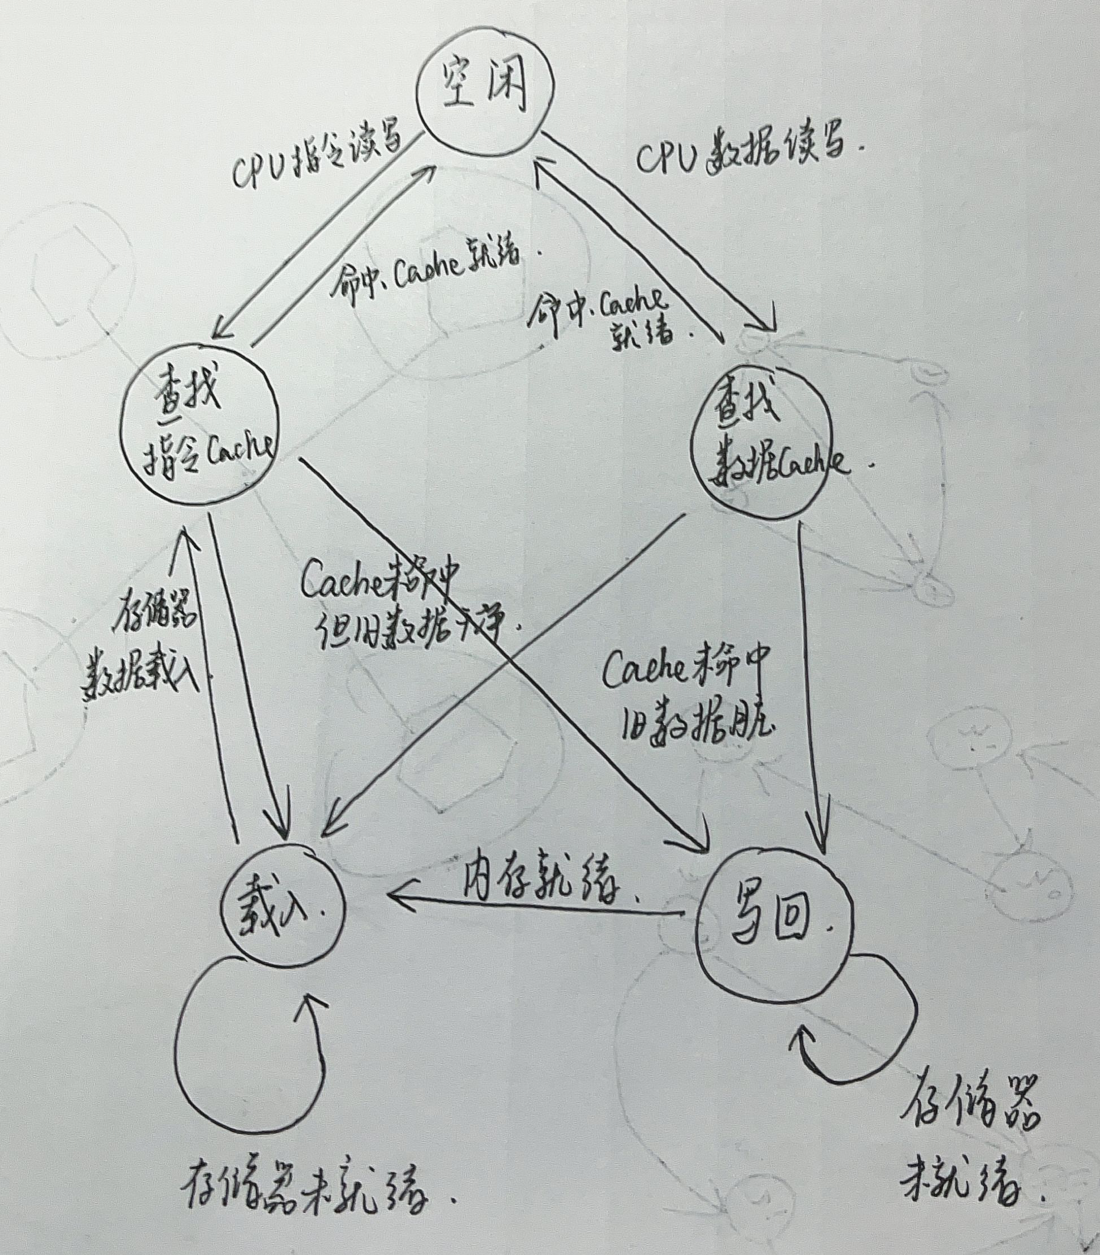 空闲
CPU指令读写
CPU数据读写.
命中、Cache就绪.
命中、Cache
就绪.
查找
指令Cache
查找
数据Cache.
存储器
数据载入
Cache未命中
但旧数据干净.
Cache未命中
旧数据脏
内存就绪.
载入.
写回.
存储器
未就绪.
存储器未就绪.